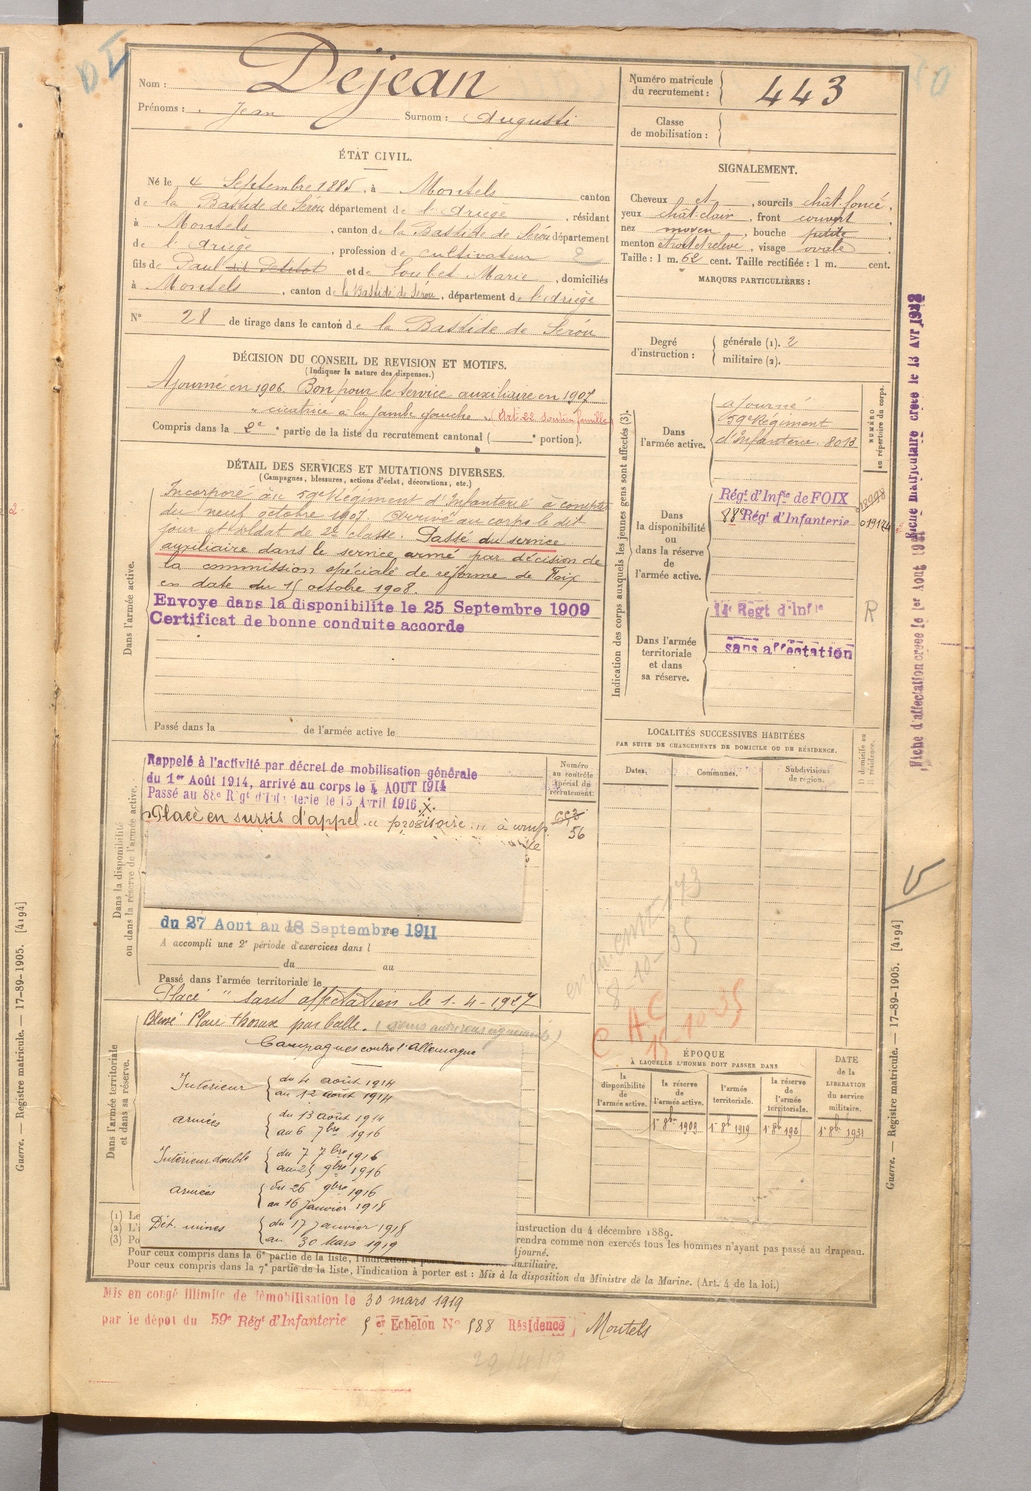 Nom : Dejean
Prénoms : Jean Surnom : Augusti
Numéro matricule du recrutement : 443
Classe de mobilisation :
ÉTAT CIVIL.
Né le 4 Septembre 1885, à Montels canton
de la Bastide de Sérou département de l'Ariège, résidant
à Montels, canton de la Bastide de Sérou département
de l'Ariège, profession de cultivateur
fils de Paul dit Petitot et de Loubet Marie, domiciliés
à Montels, canton de la Bastide de Sérou, département de l'Ariège
N° 28 de tirage dans le canton de la Bastide de Sérou
SIGNALEMENT.
Cheveux et, sourcils chat. foncé,
yeux chat. clair, front couvert
nez moyen, bouche petite,
menton, visage ovale
Taille : 1 m. 62 cent. Taille rectifiée : 1 m. cent.
MARQUES PARTICULIÈRES :
Degré d'instruction : générale (1). 2
militaire (2).
DÉCISION DU CONSEIL DE REVISION ET MOTIFS.
(Indiquer la nature des dispenses.)
Ajourné en 1906. Bon pour le service auxiliaire en 1907
cicatrice à la jambe gauche (Art. 22 soutien famille
Compris dans la 2e partie de la liste du recrutement cantonal ( portion).
DÉTAIL DES SERVICES ET MUTATIONS DIVERSES.
(Campagnes, blessures, actions d'éclat, décorations, etc.)
Dans l'armée active.
Incorporé au 59e Régiment d'Infanterie à compter
du neuf octobre 1907. Arrivé au corps le dit
jour et soldat de 2e classe. Passé du service
auxiliaire dans le service armé par décision de
la commission spéciale de réforme de Foix
en date du 15 octobre 1908.
Envoye dans la disponibilite le 25 Septembre 1909
Certificat de bonne conduite accorde
Passé dans la de l'armée active le
Indication des corps auxquels les jeunes gens sont affectés (3).
NUMÉRO au répertoire du corps.
Dans l'armée active.
ajourné
59e Régiment
d'Infanterie. 8013
Dans la disponibilité ou dans la réserve de l'armée active.
Régt d'Infie de FOIX
88 Régt d'Infanterie 019124
Dans l'armée territoriale et dans sa réserve.
14 Regt d'Infie
R
sans affectation
Fiche matriculaire créée le 13 Avr 1942
Fiche d'affectation créée le 1er Aout
Dans la disponibilité ou dans la réserve de l'armée active.
Rappelé à l'activité par décret de mobilisation générale
du 1er Août 1914, arrivé au corps le 4 AOUT 1914
Passé au 88e Régt d'Infanterie le 15 Avril 1916 x.
Placé en sursis d'appel
du 27 Aout au 18 Septembre 1911
A accompli une 2e période d'exercices dans l
du au
Passé dans l'armée territoriale le
Placé " sans affectation le 1-4-1927
Numéro au contrôle spécial du recrutement:
56
LOCALITÉS SUCCESSIVES HABITÉES
PAR SUITE DE CHANGEMENTS DE DOMICILE OU DE RÉSIDENCE.
Dates. Communes. Subdivisions de région. D domicile ou R résidence.
8-10-35
C A C
15 10 35
Dans l'armée territoriale et dans sa réserve.
Blessé Plaie thorax par balle. (sans autres renseignements)
Campagnes contre l'Allemagne
Intérieur du 4 août 1914
au 12 août 1914
armées du 13 août 1914
au 6 7bre 1916
Intérieur double du 7 7bre 1916
au 25 9bre 1916
armées du 26 9bre 1916
au 16 Janvier 1918
Dét. mines du 17 Janvier 1918
au 30 mars 1919
ÉPOQUE
À LAQUELLE L'HOMME DOIT PASSER DANS
la disponibilité de l'armée active. la réserve de l'armée active. l'armée territoriale. la réserve de l'armée territoriale. DATE de la LIBERATION du service militaire.
1er 8bre 1909 1er 8bre 1919 1er 8bre 1931
(1) Le
(2) L'i instruction du 4 décembre 1889.
(3) Po rendra comme non exercés tous les hommes n'ayant pas passé au drapeau.
ajourné.
Pour ceux compris dans la 6e partie de la liste, l'indication à auxiliaire.
Pour ceux compris dans la 7e partie de la liste, l'indication à porter est : Mis à la disposition du Ministre de la Marine. (Art. 4 de la loi.)
Mis en congé illimité de démobilisation le 30 mars 1919
par le dépot du 59e Régt d'Infanterie 5 er Echelon N° 588 Résidence Montels
Guerre. — Registre matricule. — 17-89-1905. [4194]
Guerre. — Registre matricule. — 17-89-1905. [4194]